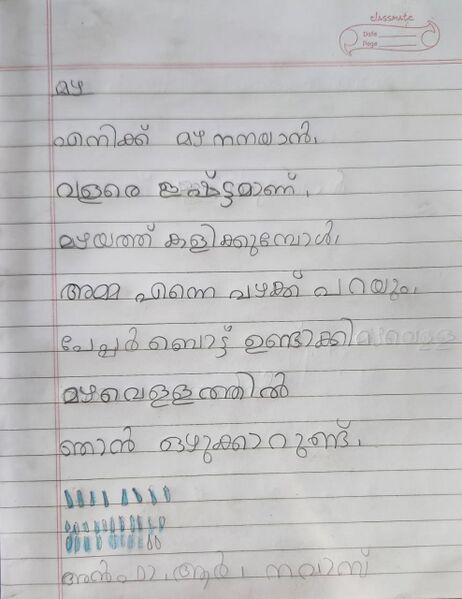 classmate
Date
Page
മഴ
എനിക്ക് മഴ നനയാൻ.
വളരെ ഇഷ്ട്ടമാണ്.
മഴയത്ത് കളിക്കുമ്പോൾ.
അമ്മ എന്നെ വഴക്ക് പറയും.
പേപ്പർ ബൊട്ട് ഉണ്ടാക്കി
മഴവെള്ളത്തിൽ
ഞാൻ ഒഴുക്കാറുണ്ട്.
ആർ. നവാസ്